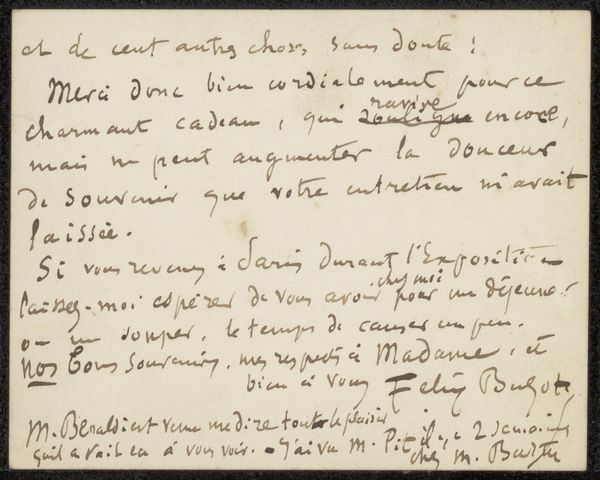 et de cent autres choses, sans doute !
Merci donc bien cordialement pour ce
charmant cadeau, qui souligne ravive encore,
mais ne peut augmenter la douceur
de souvenir que votre entretien m'avait
laissée.
Si vous revenez à Paris durant l'Exposition
laissez-moi espérer de vous avoir chez moi pour un déjeuner
ou un souper, le temps de causer un peu.
nos bons souvenirs, mes respects à Madame, et
bien à vous Félix Buhot
M. Beraldi est venu me dire tout le plaisir
qu'il avait eu à vous voir. - J'ai vu M. il y a 2 semaines
chez M.